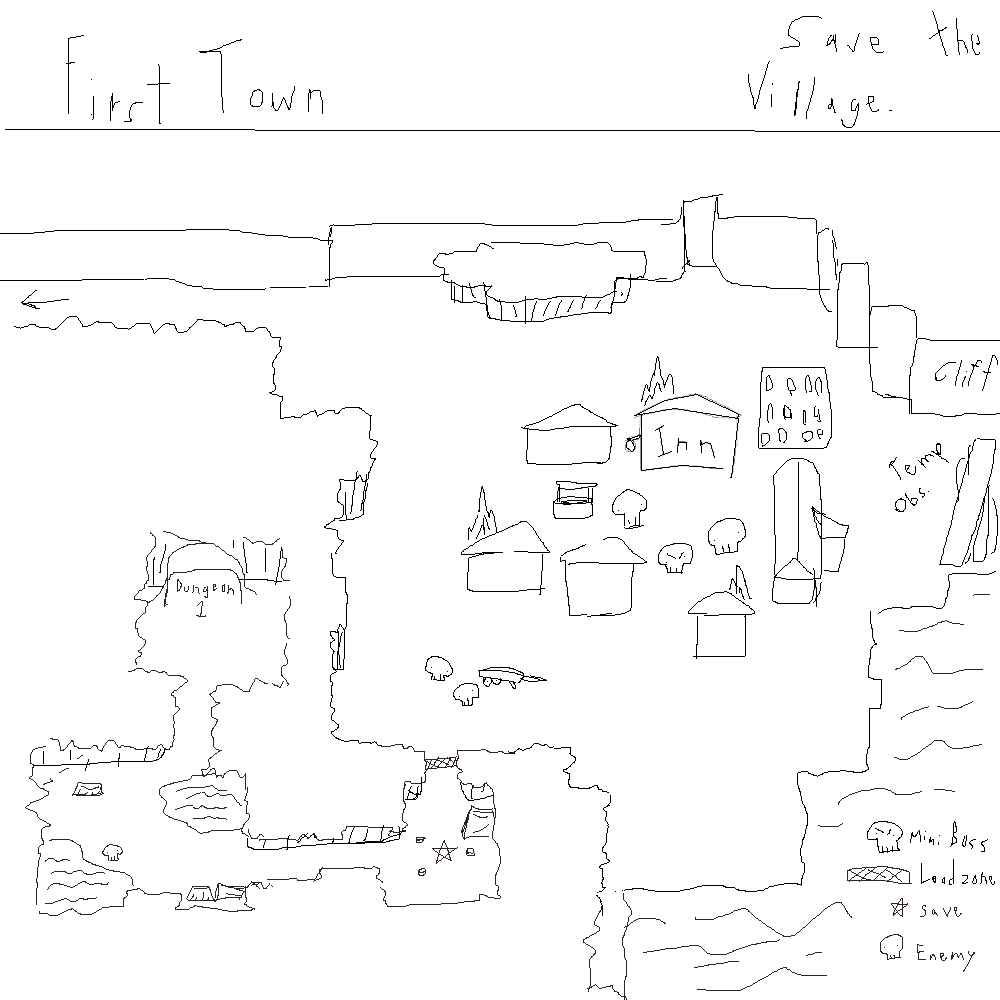 First Town
Save the
Village.
Cliff
Inn
Temp
Obs.
Dungeon
1
Mini Boss
Load zone
Save
Enemy